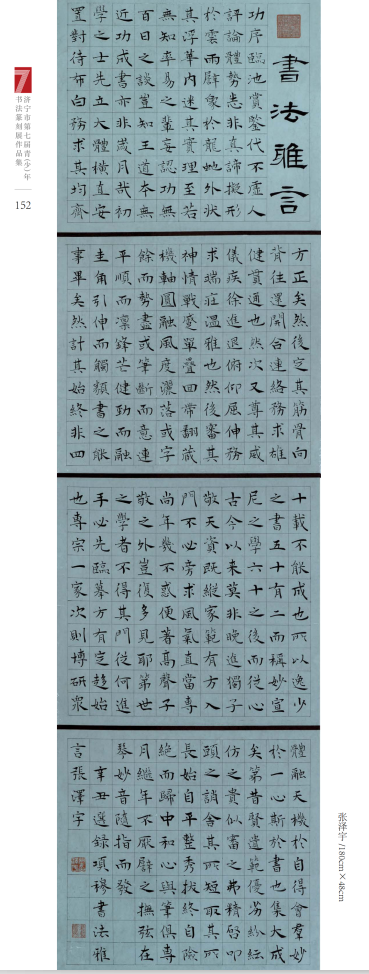 書法雅言
功序臨池賞鑒代不虛人
評論體勢悉非真諦擬形
於雲雨辟象於龍蛇外狀
其華內迷其實理至若
無知率易之輩妄認功無
百日之設豈知王道本無
近功成書亦非歲月哉初
學之士先立大體橫直安
置對待布白務求其均齊
方正矣然後定其筋骨向
背往還開合連絡務求雄
健貫通也然次又尊其威
儀疾徐進退俯仰屈伸務
求端莊溫雅也然後審其
神情戰蹙單疊回帶翻藏
機軸圓融風度灑落或字
餘而勢盡或筆斷而意連
平順而凛鋒芒健勁而融
圭角引伸而觸類書之能
事畢矣然計其始終非四
十載不能成也所以逸少
之書五十有二而稱妙宣
尼之學六十之後而從心
古今以來莫非晚進獨子
敬天資既縱家範有方入
門不必旁求風氣直當專
尚年幾不惑便著高聲子
敬之外豈復多見耶第世
之學者不得其門從何進
手必先臨摹方有定趨始
也專宗一家次則博研眾
體融天機於自得會群妙
於一心斯於書也集大成
矣第昔賢遺範優劣紛紜
仿之貴似審之弗精啓叩
頭之誚舍其所短取其所
長始自平整秀拔終自險
絕而歸中和心與筆俱專
月繼年不厭譬之撫弦在
琴妙音隨指而發
辛丑選錄項穆書法雅
言張澤宇
7
济宁市第七届青(少)年
书法篆刻展作品集
152
张泽宇/180cm×48cm